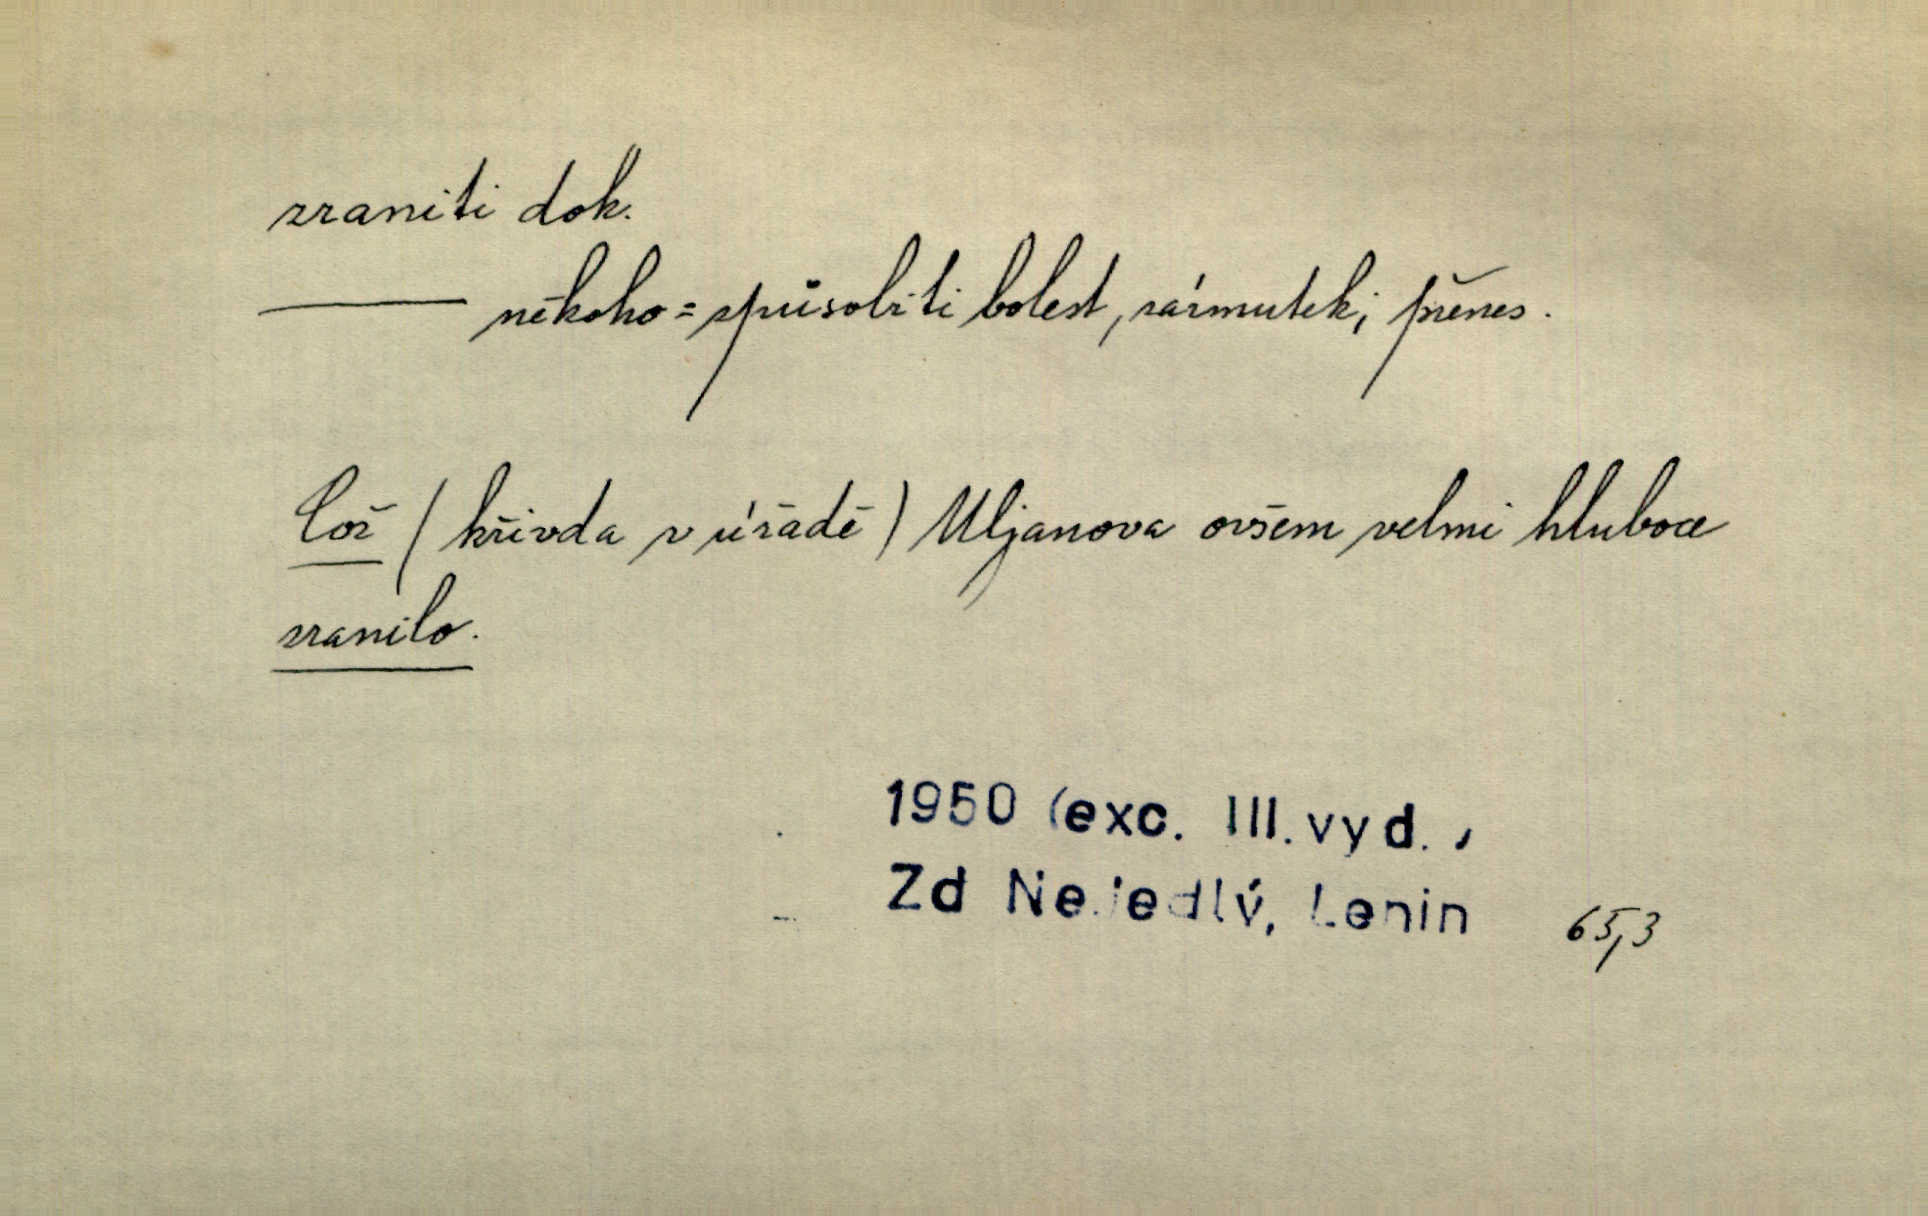 zraniti dok.
——— někoho = způsobiti bolest, zármutek; přenes.
Což (křivda v úřadě) Uljanova ovšem velmi hluboce
zranilo.
1950 (exc. III. vyd.,
Zd Nejedlý, Lenin 65,3